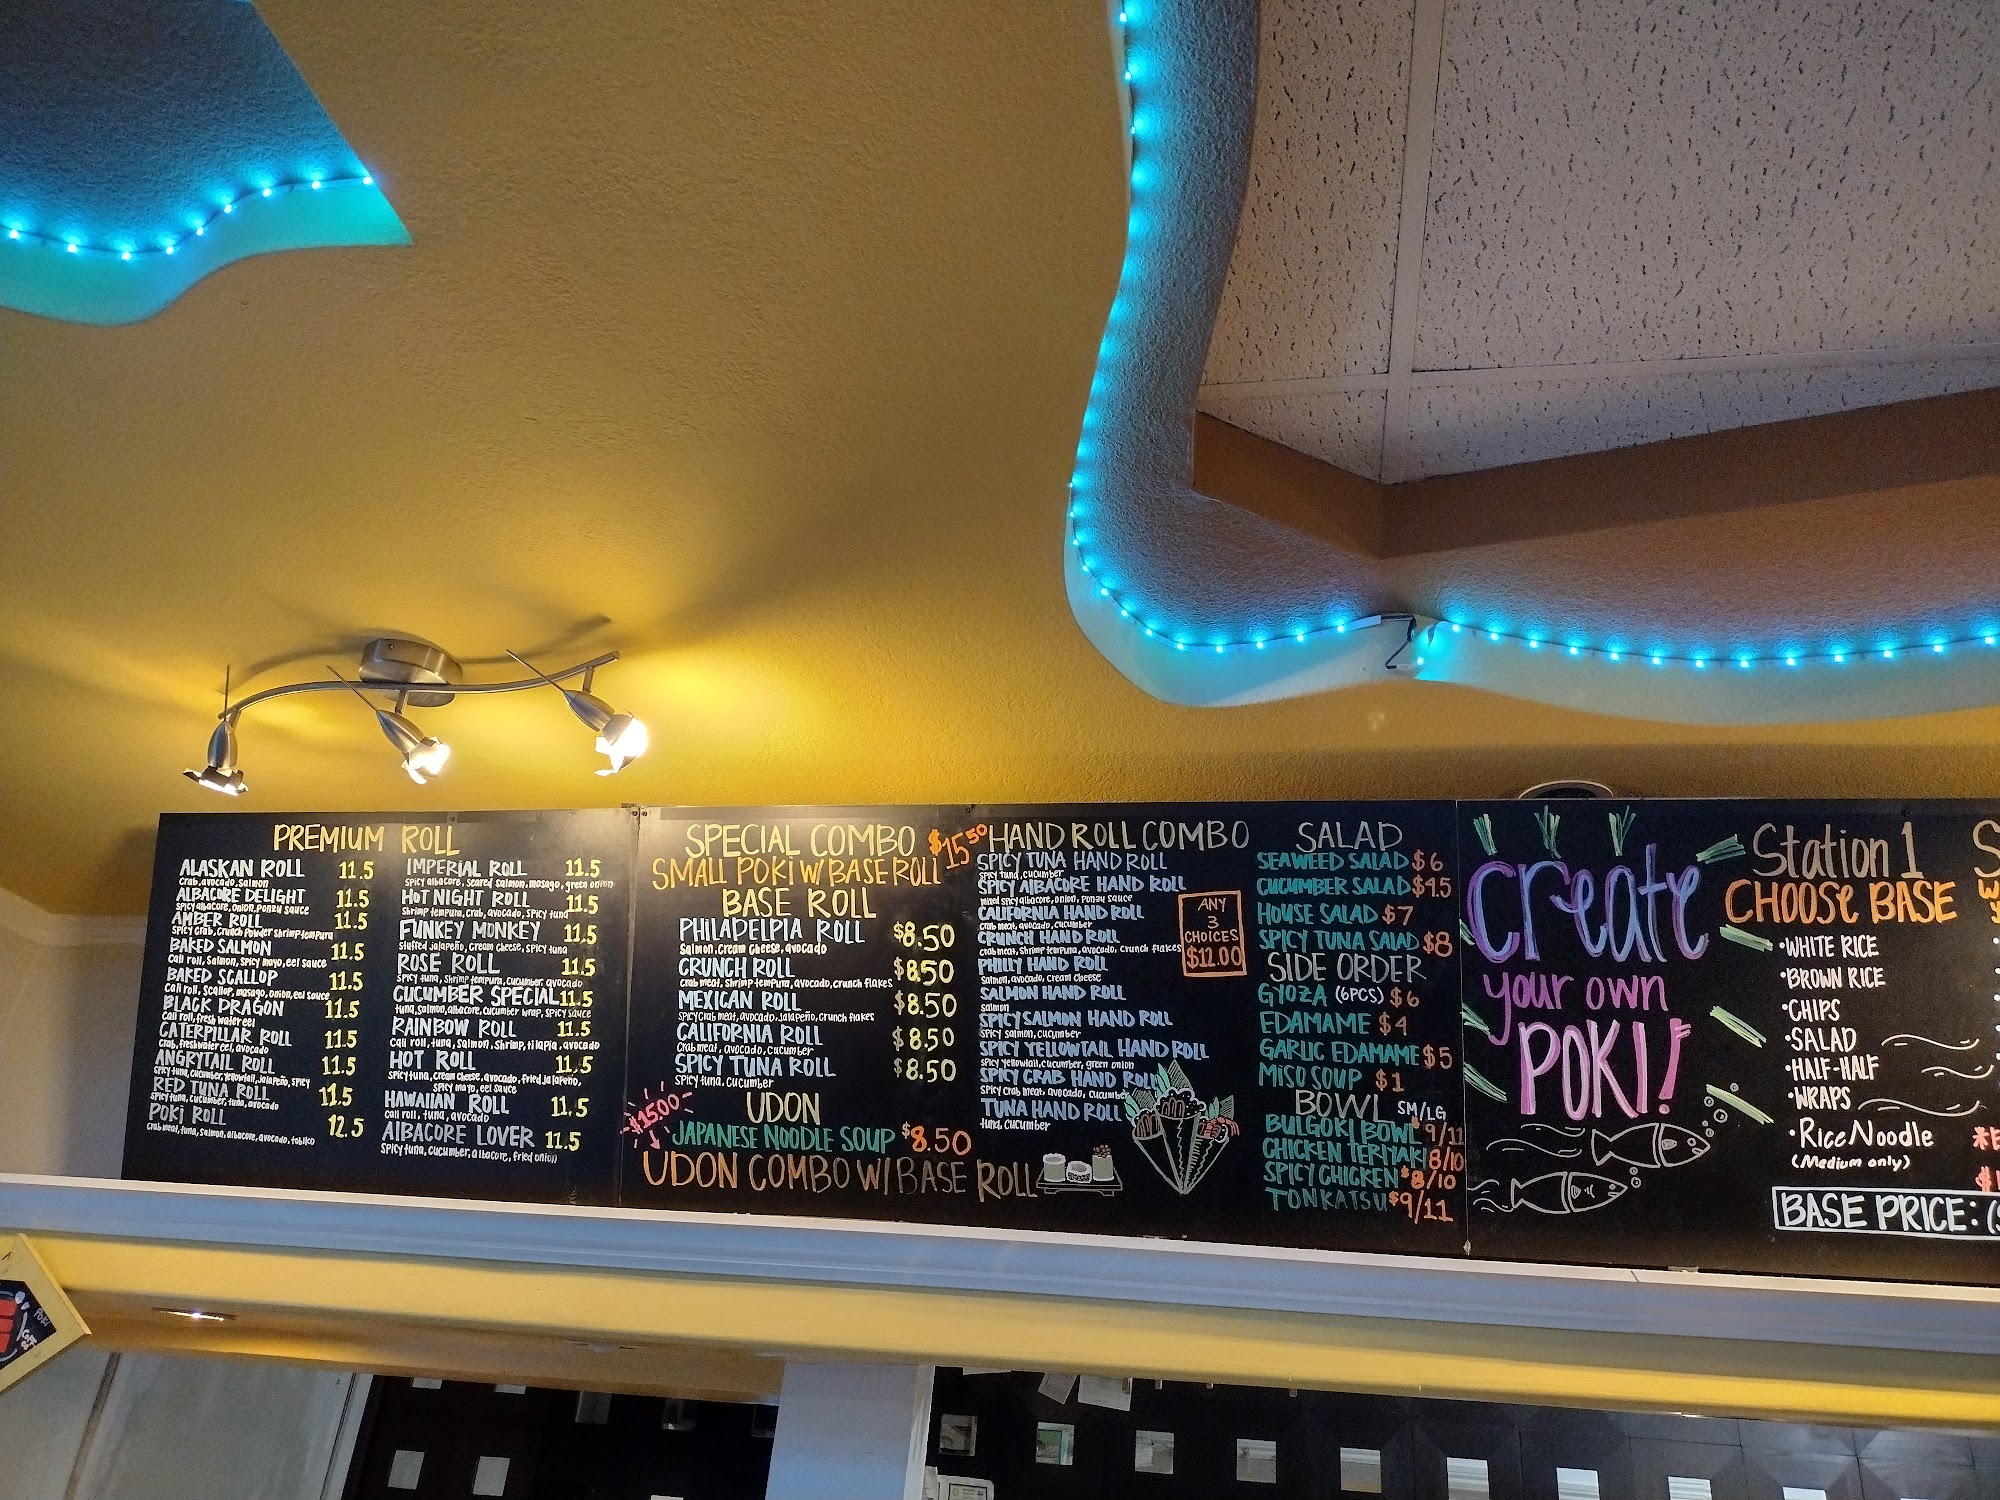 PREMIUM ROLL
ALASKAN ROLL 11.5
crab, avocado, salmon
ALBACORE DELIGHT 11.5
spicy albacore, onion, ponzu sauce
AMBER ROLL 11.5
spicy crab, crunch powder shrimp tempura
BAKED SALMON 11.5
cali roll, salmon, spicy mayo, eel sauce
BAKED SCALLOP 11.5
cali roll, scallop, masago, onion, eel sauce
BLACK DRAGON 11.5
cali roll, fresh water eel
CATERPILLAR ROLL 11.5
crab, freshwater eel, avocado
ANGRYTAIL ROLL 11.5
spicy tuna, cucumber, yellowtail, jalapeño, spicy
RED TUNA ROLL 11.5
spicy tuna, cucumber, tuna, avocado
POKI ROLL 12.5
crab meat, tuna, salmon, albacore, avocado, tobiko
IMPERIAL ROLL 11.5
spicy albacore, seared salmon, masago, green onion
HOT NIGHT ROLL 11.5
shrimp tempura, crab, avocado, spicy tuna
FUNKEY MONKEY 11.5
stuffed jalapeño, cream cheese, spicy tuna
ROSE ROLL 11.5
spicy tuna, shrimp tempura, cucumber, avocado
CUCUMBER SPECIAL 11.5
tuna, salmon, albacore, cucumber wrap, spicy sauce
RAINBOW ROLL 11.5
cali roll, tuna, salmon, shrimp, tilapia, avocado
HOT ROLL 11.5
spicy tuna, cream cheese, avocado, fried jalapeño,
spicy mayo, eel sauce
HAWAIIAN ROLL 11.5
cali roll, tuna, avocado
ALBACORE LOVER 11.5
spicy tuna, cucumber, albacore, avocado, fried onion
SPECIAL COMBO $15.50
SMALL POKI W/ BASE ROLL
BASE ROLL
PHILADELPIA ROLL $8.50
salmon, cream cheese, avocado
CRUNCH ROLL $8.50
crab meat, shrimp tempura, avocado, crunch flakes
MEXICAN ROLL $8.50
spicy crab meat, avocado, jalapeño, crunch flakes
CALIFORNIA ROLL $8.50
crab meat, avocado, cucumber
SPICY TUNA ROLL $8.50
spicy tuna, cucumber
UDON
JAPANESE NOODLE SOUP $8.50
$15.00
UDON COMBO W/ BASE ROLL
HAND ROLL COMBO
SPICY TUNA HAND ROLL
spicy tuna, cucumber
SPICY AlBACORE HAND ROLL
mixed spicy albacore, onion, ponzu sauce
CALIFORNIA HAND ROLL
crab meat, avocado, cucumber
CRUNCH HAND ROLL
crab meat, shrimp tempura, avocado, crunch flakes
PHILLY HAND ROLL
salmon, avocado, cream cheese
SALMON HAND ROLL
salmon
SPICY SALMON HAND ROLL
spicy salmon, cucumber
SPICY YELLOWTAIL HAND ROLL
spicy yellowtail, cucumber, green onion
SPICY CRAB HAND ROLL
spicy crab meat, avocado, cucumber
TUNA HAND ROLL
tuna, cucumber
ANY
3
CHOICES
$12.00
SALAD
SEAWEED SALAD $6
CUCUMBER SALAD $4.5
HOUSE SALAD $7
SPICY TUNA SALAD $8
SIDE ORDER
GYOZA (6PCS) $6
EDAMAME $4
GARLIC EDAMAME $5
MISO SOUP $1
BOWL SM/LG
BULGOKI BOWL $9/11
CHICKEN TERIYAKI 8/10
SPICY CHICKEN $8/10
TONKATSU $9/11
create
your own
POKI!
Station 1
CHOOSE BASE
•WHITE RICE
•BROWN RICE
•CHIPS
•SALAD
•HALF-HALF
•WRAPS
•Rice Noodle
(Medium only)
BASE PRICE:
POKI